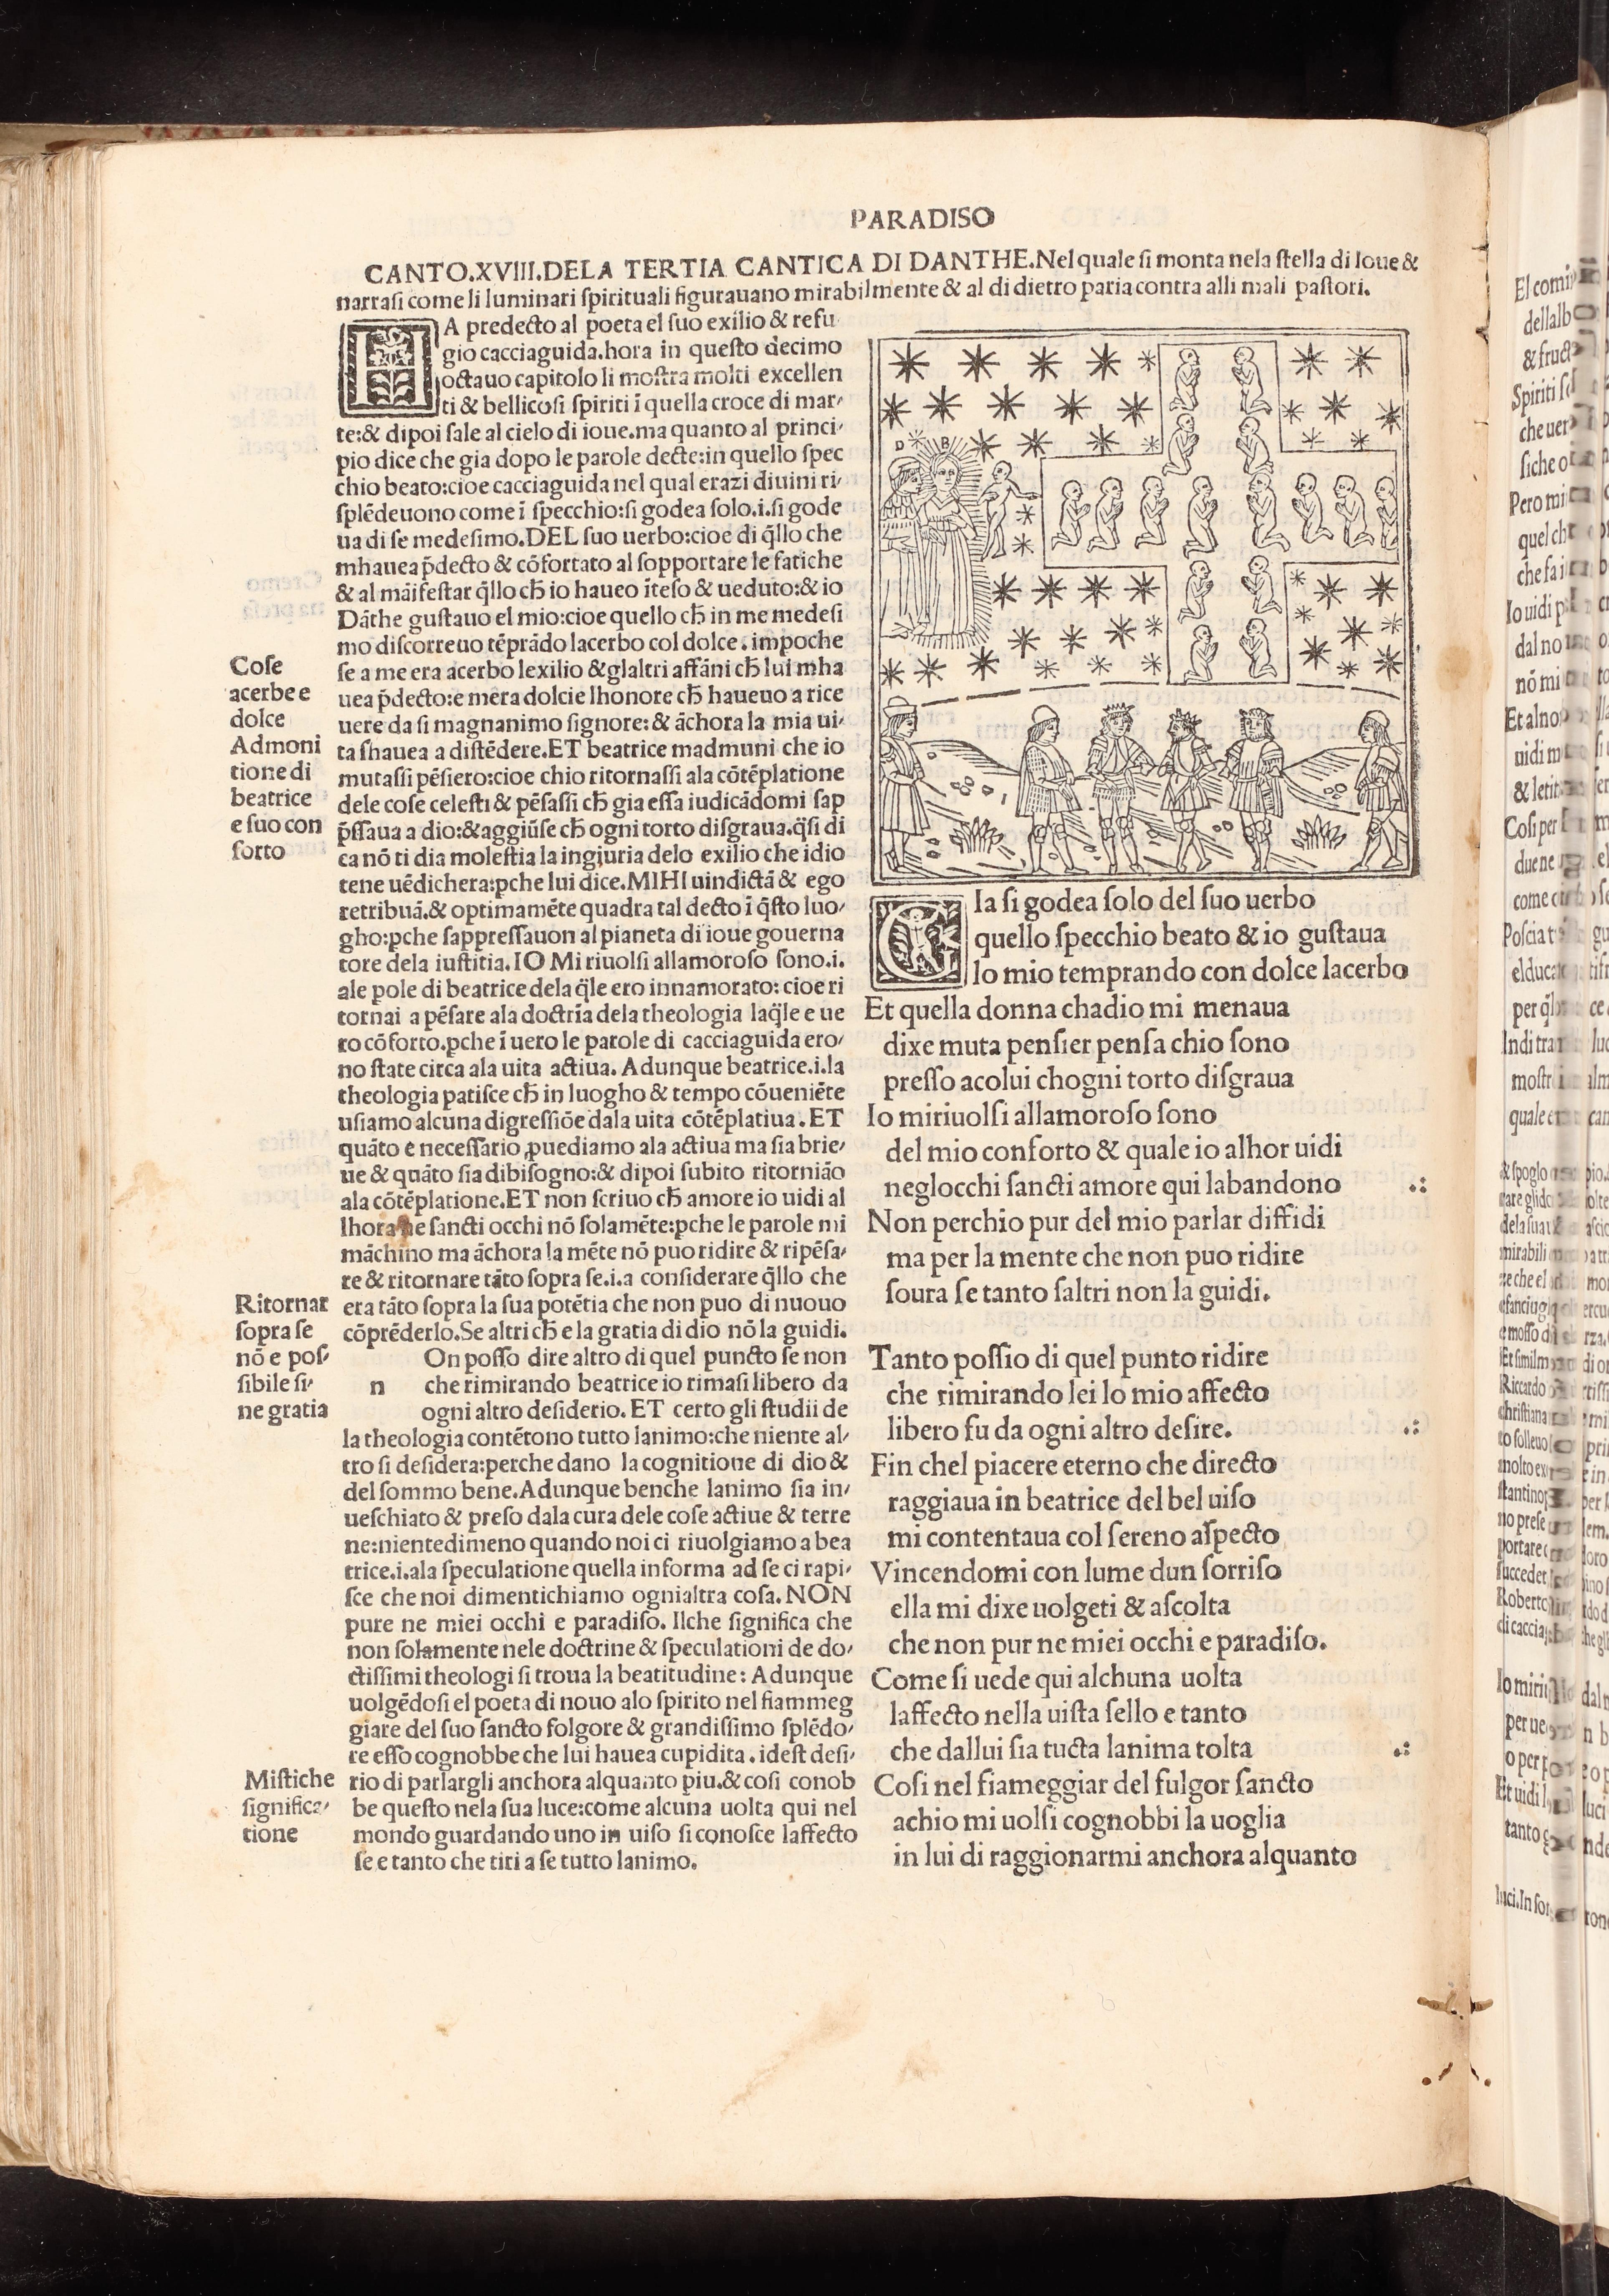 PARADISO
CANTO.XVIII.DELA TERTIA CANTICA DI DANTHE.Nel quale si monta nela stella di Ioue &
narrasi come li luminari spirituali figurauano mirabilmente & al di dietro paria contra alli mali pastori.
HA predecto al poeta el suo exilio & refu
gio cacciaguida.hora in questo decimo
octauo capitolo li mostra molti excellen
ti & bellicosi spiriti ī quella croce di mar/
te:& dipoi sale al cielo di ioue.ma quanto al princi/
pio dice che gia dopo le parole decte:in quello spec
chio beato:cioe cacciaguida nel qual erazi diuini ri/
splēdeuono come ī specchio:si godea solo.i.si gode
ua di se medesimo.DEL suo uerbo:cioe di q̄llo che
mhauea p̄decto & cōfortato al sopportare le fatiche
& al māifestar q̄llo cħ io haueo īteso & ueduto:& io
Dāthe gustauo el mio:cioe quello cħ in me medesi
mo discorreuo tēprādo lacerbo col dolce.impoche
se a me era acerbo lexilio & glaltri affāni cħ lui mha
uea p̄decto:e mera dolcie lhonore cħ haueuo a rice
uere da si magnanimo signore:& āchora la mia ui/
ta shauea a distēdere.ET beatrice madmuni che io
mutassi pēsiero:cioe chio ritornassi ala cōtēplatione
dele cose celesti & pēsassi cħ gia essa iudicādomi sap
p̄ssaua a dio:&aggiūse cħ ogni torto disgraua.q̄si di
ca nō ti dia molestia la ingiuria delo exilio che idio
tene uēdichera:pche lui dice.MIHI uindictā & ego
retribuā.& optimamēte quadra tal decto ī q̄sto luo/
gho:pche sappressauon al pianeta di ioue gouerna
tore dela iustitia.IO Mi riuolsi allamoroso sono.i.
ale pole di beatrice dela q̄le ero innamorato:cioe ri
tornai a pēsare ala doctrīa dela theologia laq̄le e ue
ro cōforto.pche ī uero le parole di cacciaguida ero/
no state circa ala uita actiua. Adunque beatrice.i.la
theologia patisce cħ in luogho & tempo cōueniēte
usiamo alcuna digressiōe dala uita cōtēplatiua. ET
quāto e necessario ꝓuediamo ala actiua ma sia brie/
ue & quāto sia dibisogno:& dipoi subito ritorniāo
ala cōtēplatione.ET non scriuo cħ amore io uidi al
lhora ne sancti occhi nō solamēte:pche le parole mi
māchino ma āchora la mēte nō puo ridire & ripēsa/
re & ritornare tāto sopra se.i.a considerare q̄llo che
era tāto sopra la sua potētia che non puo di nuouo
cōprēderlo.Se altri cħ e la gratia di dio nō la guidi.
n
On posso dire altro di quel puncto se non
che rimirando beatrice io rimasi libero da
ogni altro desiderio. ET certo gli studii de
la theologia contētono tutto lanimo:che niente al/
tro si desidera:perche dano la cognitione di dio &
del sommo bene.Adunque benche lanimo sia in/
ueschiato & preso dala cura dele cose actiue & terre
ne:nientedimeno quando noi ci riuolgiamo a bea
trice.i.ala speculatione quella informa ad se ci rapi/
sce che noi dimentichiamo ognialtra cosa. NON
pure ne miei occhi e paradiso. Ilche significa che
non solamente nele doctrine & speculationi de do/
ctissimi theologi si troua la beatitudine: Adunque
uolgēdosi el poeta di nouo alo spirito nel fiammeg
giare del suo sancto folgore & grandissimo splēdo/
re esso cognobbe che lui hauea cupidita.idest desi/
rio di parlargli anchora alquanto piu.& cosi conob
be questo nela sua luce:come alcuna uolta qui nel
mondo guardando uno in uiso si conosce laffecto
se e tanto che titi a se tutto lanimo.
Cose
acerbe e
dolce
Admoni
tione di
beatrice
e suo con
forto
Ritornar
sopra se
nō e pos/
sibile si/
ne gratia
Mistiche
significa/
tione
D B
GIa si godea solo del suo uerbo
quello specchio beato & io gustaua
lo mio temprando con dolce lacerbo
Et quella donna chadio mi menaua
dixe muta pensier pensa chio sono
presso acolui chogni torto disgraua
Io miriuolsi allamoroso sono
del mio conforto & quale io alhor uidi
neglocchi sancti amore qui labandono
Non perchio pur del mio parlar diffidi
ma per la mente che non puo ridire
soura se tanto saltri non la guidi.
Tanto possio di quel punto ridire
che rimirando lei lo mio affecto
libero fu da ogni altro desire.
Fin chel piacere eterno che directo
raggiaua in beatrice del bel uiso
mi contentaua col sereno aspecto
Vincendomi con lume dun sorriso
ella mi dixe uolgeti & ascolta
che non pur ne miei occhi e paradiso.
Come si uede qui alchuna uolta
laffecto nella uista sello e tanto
che dallui sia tucta lanima tolta
Cosi nel fiameggiar del fulgor sancto
achio mi uolsi cognobbi la uoglia
in lui di raggionarmi anchora alquanto